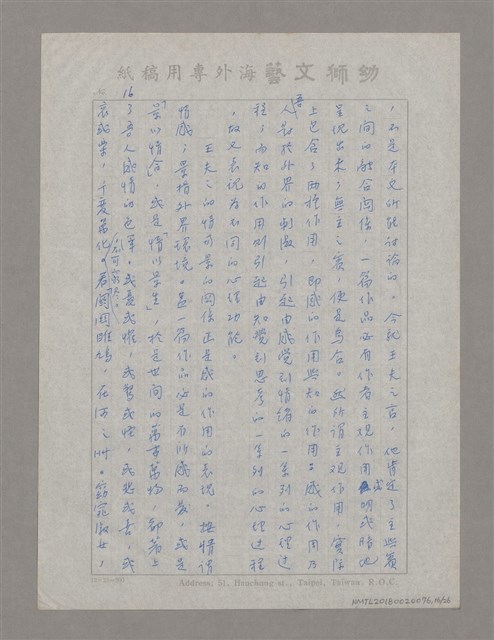 幼獅文藝海外專用稿紙
，不是本文所能討論的。今就王夫之言，他肯定了主與賓
之間的融合關係，一篇作品必有作者主觀作用或明或暗地
呈現出來，「無主之賓」便是烏合。然所謂主觀作用，實際
上包含了兩種作用，即感的作用與知的作用。感的作用乃
吾人對於外界的刺激，引起由感覺到情緒的一系列的心理過
程；而知的作用則引起由知覺到思考的一系列的心理過程
，故又表現為不同的心理功能。
王夫之的情與景的關係正是感的作用的表現。按情謂
情感；景指外界環境。甚一篇作品必是有所感而發，或是
「景以情合」，或是「情以景生」，於是世間的萬事萬物，都蓄上
了吾人感情的色澤，或喜或懼，或驚或怪，或悲或吝，或
哀或樂，千變萬化，不可窮於。君關關雎鳩，在河之洲。窈窕淑女，
16
12×25=300
Address: 51, Hanchung st., Taipei, Taiwan, R.O.C.
NMTL20180020096,16/26